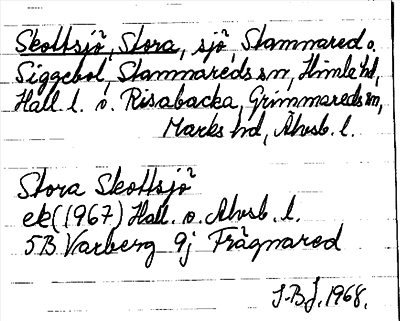 Skottsjö, Stora, sjö, Stammared o.
Siggebol, Stammareds sn, Himle hd,
Hall. l. o. Risabacka, Grimmareds sn,
Marks hd, Älvsb. l.
Stora Skottsjö
ek (1967) Hall. o. Älvsb. l.
5B Varberg 9j Frägnared
S.B.J. 1968.